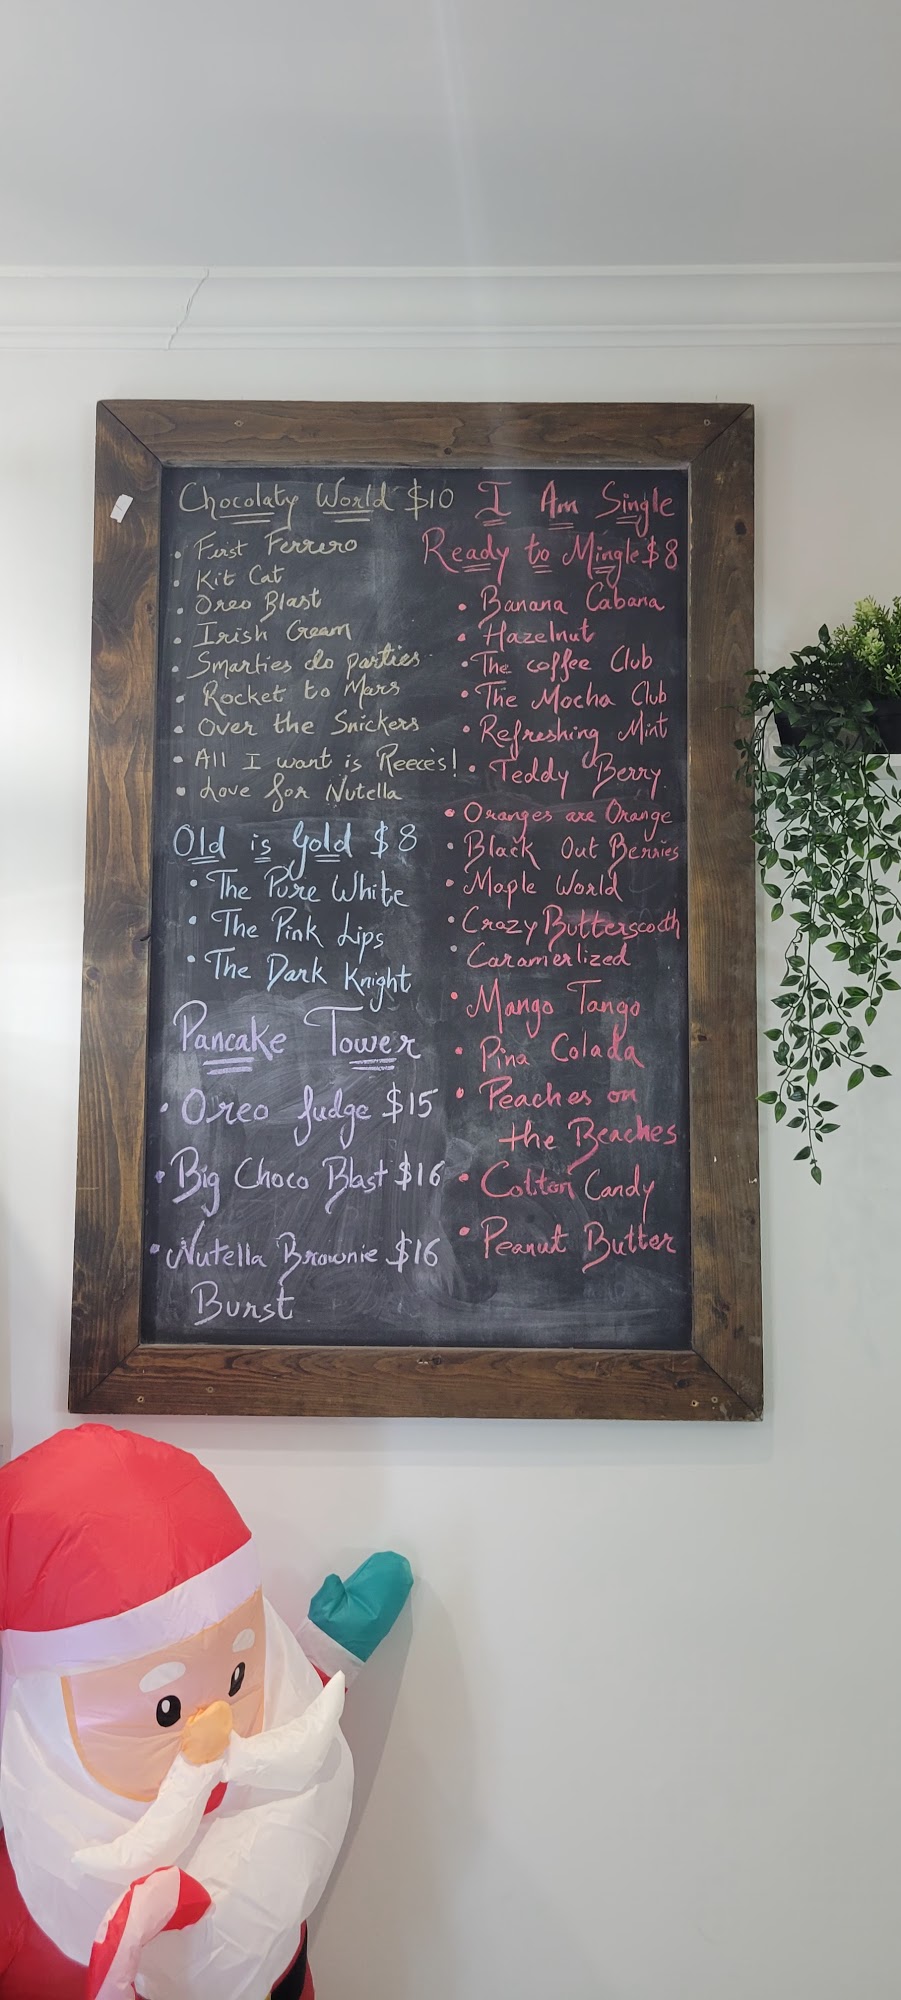 Chocolaty World $10
• First Ferrero
• Kit Cat
• Oreo Blast
• Irish Cream
• Smarties do parties
• Rocket to Mars
• Over the Snickers
• All I want is Reece's!
• Love for Nutella
Old is Gold $8
• The Pure White
• The Pink Lips
• The Dark Knight
Pancake Tower
• Oreo fudge $15
• Big Choco Blast $16
• Nutella Brownie $16
Burst
I Am Single
Ready to Mingle $8
• Banana Cabana
• Hazelnut
• The coffee Club
• The Mocha Club
• Refreshing Mint
• Teddy Berry
• Oranges are Orange
• Black Out Berries
• Maple World
• Crazy Butterscoth
• Caramerlized
• Mango Tango
• Pina Colada
• Peaches on
the Beaches
• Cotton Candy
• Peanut Butter